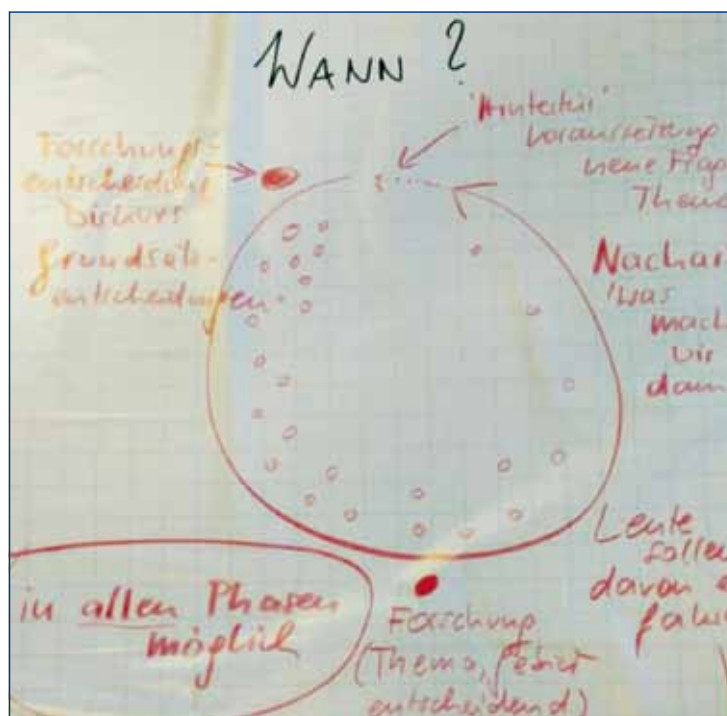 WANN ?
Forschungs-
entscheidung
Diskurs
Grundsatz-
entscheidungen
"Hintertür"
Voraussetzung
neue Frag
Them
Nachar
'was
mach
wir
dam
Leute
sollen
davon
fah
in allen Phasen
möglich
Forschung
(Thema,
entscheidend)